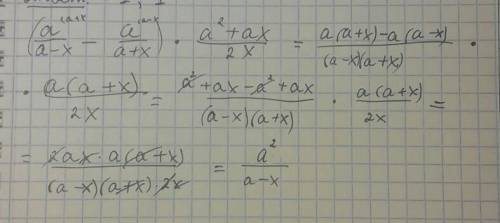 (a/(a-x) ^(a+x) - a/(a+x) ^(a-x)) · (a² + ax)/(2x) = (a(a+x) - a(a-x))/((a-x)(a+x)) ·
· a(a+x)/(2x) = (a² + ax - a² + ax)/((a-x)(a+x)) · a(a+x)/(2x) =
= (2ax · a(a+x))/((a-x)(a+x) · 2x) = a²/(a-x)